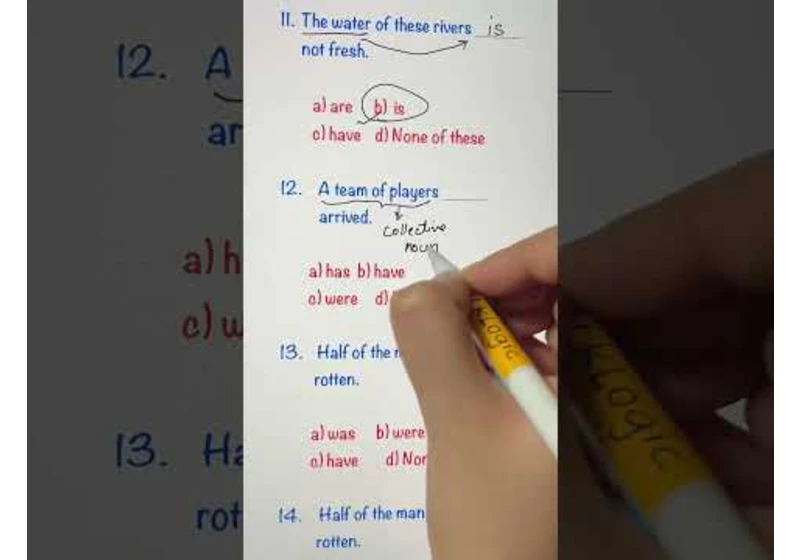 11. The water of these rivers is
not fresh.
a) are b) is
c) have d) None of these
12. A team of players
arrived.
collective
noun
a) has b) have
c) were d)
13. Half of the
rotten.
a) was b) were
c) have d)
14. Half of the man
rotten.